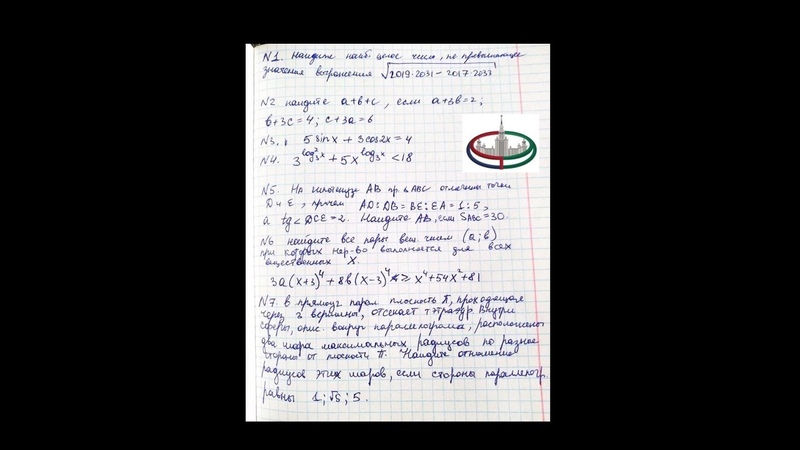 N1. Найдите наиб. целое число, не превышающее
значения выражения √2019·2031 − 2017·2033
N2 найдите a+b+c, если a+3b=2;
b+3c=4; c+3a=6
N3. 5 sinx + 3cos2x = 4
N4. 3^log₃²x + 5x^log₃x < 18
N5. На гипотенузе AB пр. Δ ABC отмечены точки
D и E, причем AD:DB = BE:EA = 1:5,
а tg∠DCE = 2. Найдите AB, если SABC = 30.
N6 найдите все пары вещ. чисел (a;b)
при которых нер-во выполняется для всех
вещественных X.
3a(x+3)⁴ + 8b(x−3)⁴ ≥ x⁴ + 54x² + 81
N7. В прямоуг парал плоскость П, проходящая
через 3 вершины, отсекает тэтраэдр. Внутри
сферы, опис. вокруг параллелограма, расположены
два шара максимальных радиусов по разные
стороны от плоскости П. Найдите отношение
радиусов этих шаров, если стороны параллелогр.
равны 1; √5; 5.